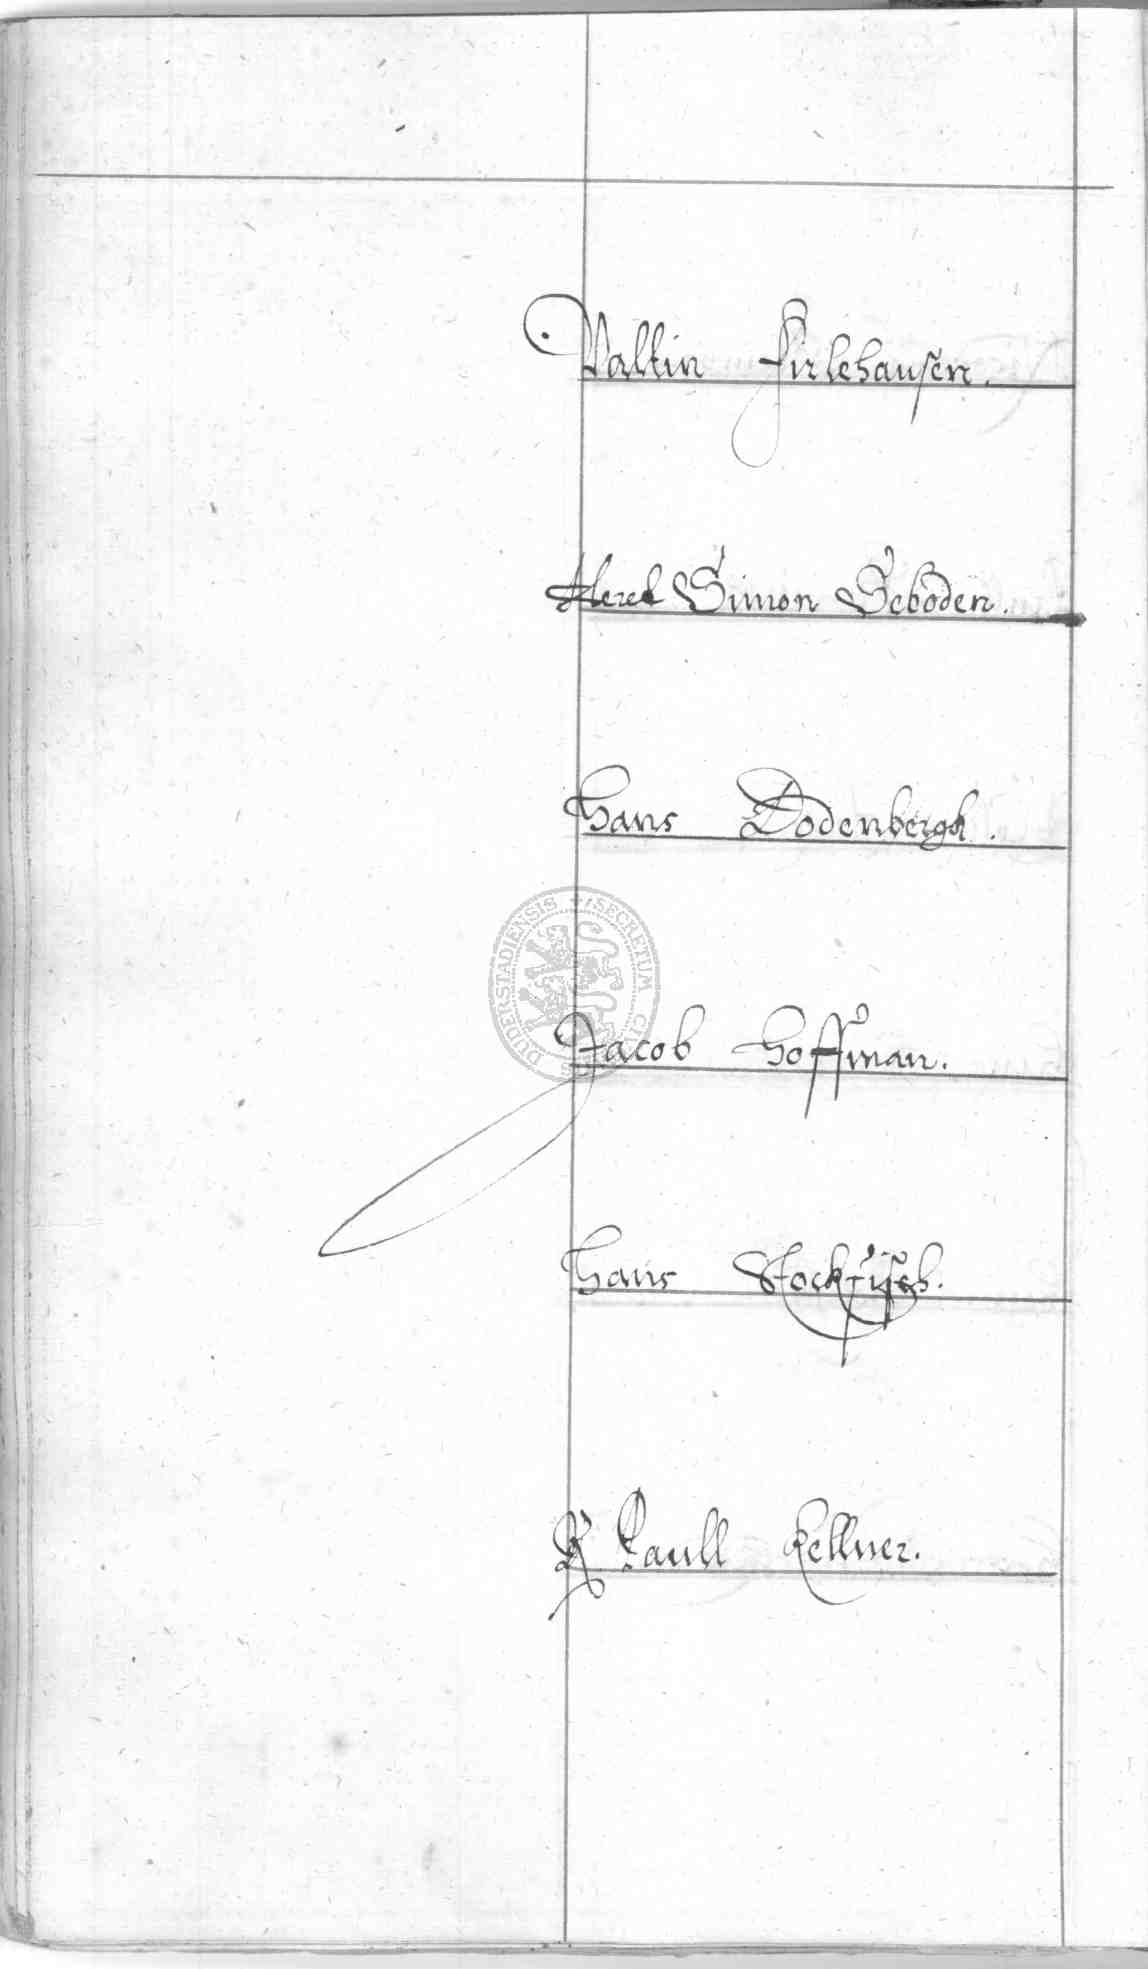 Valtin Firlehausen.
Simon Seboden.
Hans Dodenbergk.
Jacob Hoffman.
Hans Stockfisch.
Paull Kellner.
SECRETUM CI DUDERSTADIENSIS